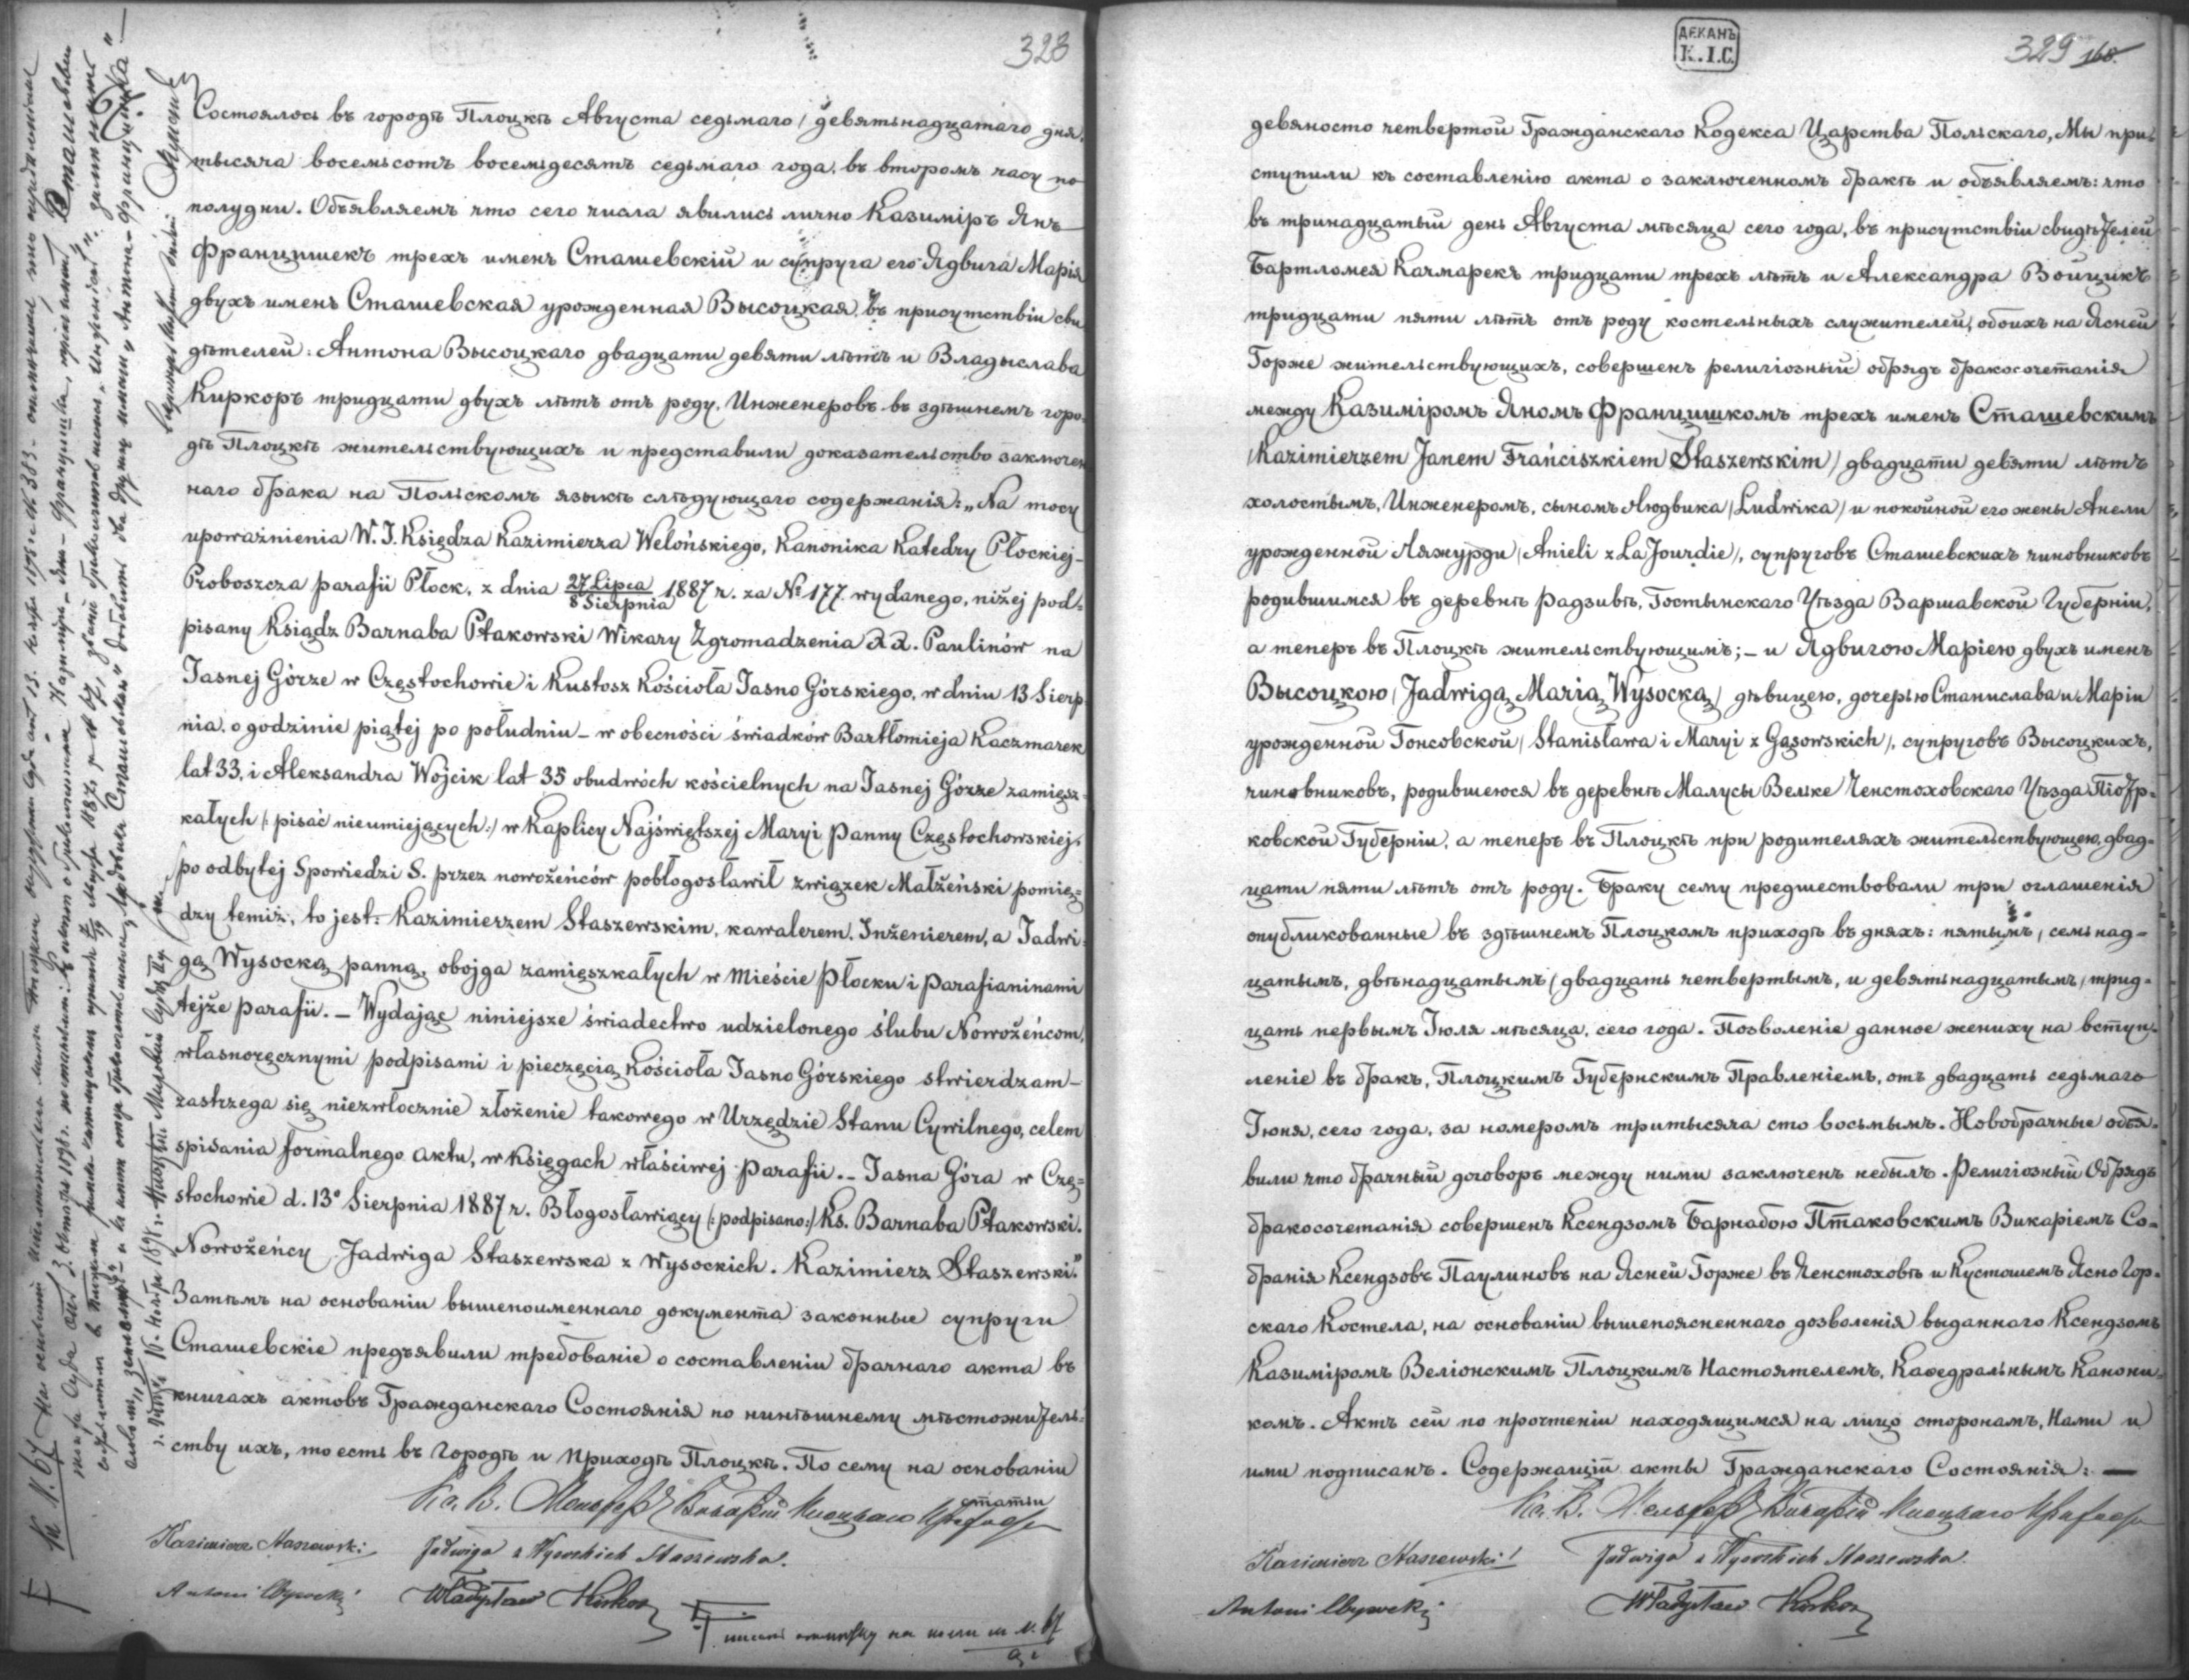 323
Состоялось въ городѣ Плоцкѣ Августа седьмаго / девятьнадцатаго дня,
тысяча восемьсотъ восемьдесятъ седьмаго года, въ второмъ часу по
полудни. Объявляемъ что сего числа явились лично Казиміръ Янъ
Францишекъ трехъ именъ Сташевскій и супруга его Ядвига Марія
двухъ именъ Сташевская урожденная Высоцкая, въ присутствіи сви
дѣтелей: Антона Высоцкаго двадцати девяти лѣтъ и Владыслава
Киркоръ тридцати двухъ лѣтъ отъ роду, Инженеровъ въ здѣшнемъ горо-
дѣ Плоцкѣ жительствующихъ и представили доказательство заключен
наго брака на Польскомъ языкѣ слѣдующаго содержанія: „Na mocy
upoważnienia W. J. Księdza Kazimierza Welońskiego, Kanonika Katedry Płockiej-
Proboszcza parafii Płock, z dnia 27 Lipca / 8 Sierpnia 1887 r. za № 177 wydanego, niżej pod=
pisany Ksiądz Barnaba Ptakowski Wikary Zgromadzenia XX. Paulinów na
Jasnej Górze w Częstochowie i Kustosz Kościoła Jasno Górskiego, w dniu 13 Sierp
nia, o godzinie piątej po południu – w obecności świadków Bartłomieja Kaczmarek
lat 33, i Aleksandra Wojcik lat 35 obudwóch kościelnych na Jasnej Górze zamięsz-
kałych (: pisać nieumiejących :) w Kaplicy Najświętszej Maryi Panny Częstochowskiej,
po odbytej Spowiedzi S. przez nowożeńców pobłogosławił związek Małżeński pomię=
dzy temiż, to jest: Kazimierzem Staszewskim, kawalerem, Inżenierem, a Jadwi-
gą Wysocką panną, obojga zamięszkałych w mieście Płocku i parafianinami
tejże parafii. – Wydając niniejsze świadectwo udzielonego ślubu Nowożeńcom,
własnoręcznymi podpisami i pieczęcią Kościoła Jasno Górskiego stwierdzam –
zastrzega się niezwłocznie złożenie takowego w Urzędzie Stanu Cywilnego, celem
spisania formalnego aktu, w Księgach właściwej parafii. – Jasna Góra w Czę=
stochowie d. 13º Sierpnia 1887 r. Błogosławiący (: podpisano :) Ks. Barnaba Ptakowski.
Nowożeńcy Jadwiga Staszewska z Wysockich. Kazimierz Staszewski."
Затѣмъ на основаніи вышепоименнаго документа законные супруги
Сташевскіе предъявили требованіе о составленіи брачнаго акта въ
книгахъ актовъ Гражданскаго Состоянія по нинѣшнему мѣстожитель-
ству ихъ, то есть въ Городѣ и Приходѣ Плоцкѣ. По сему на основаніи
статьи
Kazimierz Staszewski
Jadwiga z Wysockich Staszewska.
Antoni Wysocki
Władysław Kirkor
ДЕКАНЪ
К. І. С.
329 168.
девяносто четвертой Гражданскаго Кодекса Царства Польскаго, Мы при-
ступили къ составленію акта о заключенномъ бракѣ и объявляемъ: что
въ тринадцатый день Августа мѣсяца сего года, въ присутствіи свидѣтелей
Бартломея Качмарекъ тридцати трехъ лѣтъ и Александра Войцикъ
тридцати пяти лѣтъ отъ роду костельныхъ служителей, обоихъ на Ясней
Горже жительствующихъ, совершенъ религіозный обрядъ бракосочетанія
между Казиміромъ Яномъ Францишкомъ трехъ именъ Сташевскимъ
/Kazimierzem Janem Franciszkiem Staszewskim/ двадцати девяти лѣтъ
холостымъ, Инженеромъ, сыномъ Людвика /Ludwika/ и покойной его жены Анели
урожденной Ляжурди /Anieli z La Jourdie/, супруговъ Сташевскихъ чиновниковъ
родившимся въ деревнѣ Радзивѣ, Гостынскаго Уѣзда Варшавской Губерніи,
а теперъ въ Плоцкѣ жительствующимъ; – и Ядвигою Маріею двухъ именъ
Высоцкою /Jadwigą Marią Wysocką/ дѣвицею, дочерью Станислава и Маріи
урожденной Гонсовской /Stanisława i Maryi z Gąsowskich/, супруговъ Высоцкихъ,
чиновниковъ, родившеюся въ деревнѣ Малусы Вельке Ченстоховскаго Уѣзда Піотр-
ковской Губерніи, а теперъ въ Плоцкѣ при родителяхъ жительствующею, двад-
цати пяти лѣтъ отъ роду. Браку сему предшествовали три оглашенія
опубликованные въ здѣшнемъ Плоцкомъ приходѣ въ дняхъ: пятымъ / семьнад-
цатымъ, двѣнадцатымъ / двадцать четвертымъ, и девятьнадцатымъ / трид-
цать первымъ Іюля мѣсяца, сего года. Позволеніе данное жениху на вступ-
леніе въ бракъ, Плоцкимъ Губернскимъ Правленіемъ, отъ двадцать седьмаго
Іюня, сего года, за номеромъ тритысяча сто восьмымъ. Новобрачные объя-
вили что брачный договоръ между ними заключенъ небылъ. Религіозный Обрядъ
бракосочетанія совершенъ Ксендзомъ Барнабою Птаковскимъ Викаріемъ Со-
бранія Ксендзовъ Паулиновъ на Ясней Горже въ Ченстоховѣ и Кустошемъ Ясно Гор-
скаго Костела, на основаніи вышепоясненнаго дозволенія выданнаго Ксендзомъ
Казиміромъ Веліонскимъ Плоцкимъ Настоятелемъ, Кафедральнымъ Канони-
комъ. Актъ сей по прочтеніи находящимся на лицо сторонамъ, Нами и
ими подписанъ. Содержащій акты Гражданскаго Состоянія: —
Kazimierz Staszewski
Jadwiga z Wysockich Staszewska.
Antoni Wysocki
Władysław Kirkor